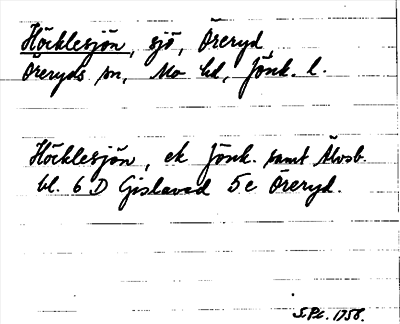 Höcklesjön, sjö, Öreryd,
Öreryds sn, Mo hd, Jönk. l.
Höcklesjön, ek Jönk. samt Älvsb.
bl. 6 D Gislaved 5c Öreryd.
S.Pl. 1758.